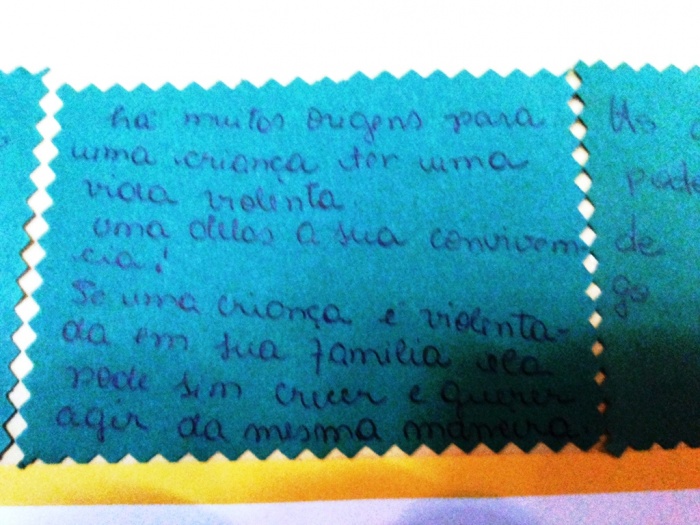 há muitos origens para
uma criança ter uma
vida violenta.
uma delas a sua convivem
cia!
Se uma criança é violenta-
da em sua familia ela
pode sim crecer e querer
agir da mesma maneira.
pode
de
go